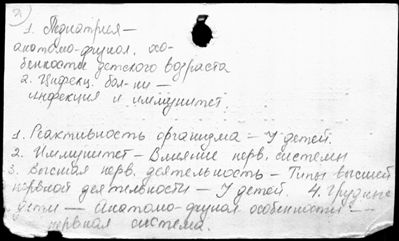 2)
1. Педиатрия —
анатомо-функц. осо-
бенности детского возраста
2. Инфекц. бол-ни —
инфекция и иммунитет.
1. Реактивность организма — У детей.
2. Иммунитет — Влияние нерв. системы
3. Высшая нерв. деятельность — Типы высшей
нервной деятельности — У детей. 4. Грудные
дети — Анатомо-функц. особенности —
нервная система.